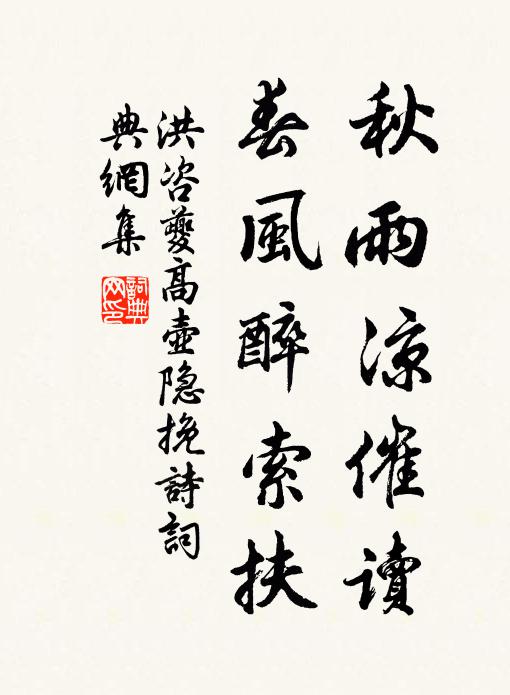 秋雨凉催讀
春風醉索扶
洪咨夔高壺隐挽詩詞
典網集
詞典
网印